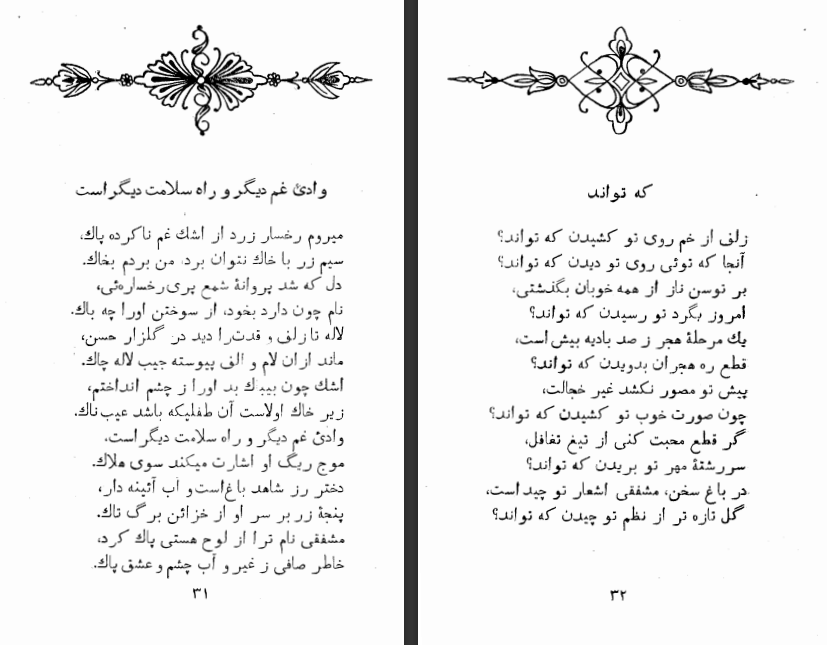 وادئ غم دیگر و راه سلامت دیگر است
میروم رخسار زرد از اشك غم ناکرده پاك،
سیم زر با خاك نتوان برد، من بردم بخاك.
دل که شد پروانۀ شمع پری‌رخساره‌ئی،
نام چون دارد بخود، از سوختن اورا چه باك.
لاله تا زلف و قدت‌را دید در گلزار حسن،
ماند ازان لام و الف پیوسته جیب لاله چاك.
اشك چون بیباك بد اورا ز چشم انداختم،
زیر خاك اولاست آن طفلیکه باشد عیب‌ناك.
وادئ غم دیگر و راه سلامت دیگر است،
موج ریگ او اشارت میکند سوی هلاك.
دختر رز شاهد باغ‌است و آب آئینه دار،
پنجۀ زر بر سر او از خزائن برگ تاك.
مشفقی نام ترا از لوح هستی پاك کرد،
خاطر صافی ز غیر و آب چشم و عشق پاك.
۳۱
که تواند
زلف از خم روی تو کشیدن که تواند؟
آنجا که توئی روی تو دیدن که تواند؟
بر توسن ناز از همه خوبان بگذشتی،
امروز بگرد تو رسیدن که تواند؟
یك مرحلۀ هجر ز صد بادیه بیش است،
قطع ره هجران بدویدن که تواند؟
پیش تو مصور نکشد غیر خجالت،
چون صورت خوب تو کشیدن که تواند؟
گر قطع محبت کنی از تیغ تغافل،
سررشتۀ مهر تو بریدن که تواند؟
در باغ سخن، مشفقی اشعار تو چید است،
گل تازه تر از نظم تو چیدن که تواند؟
۳۲